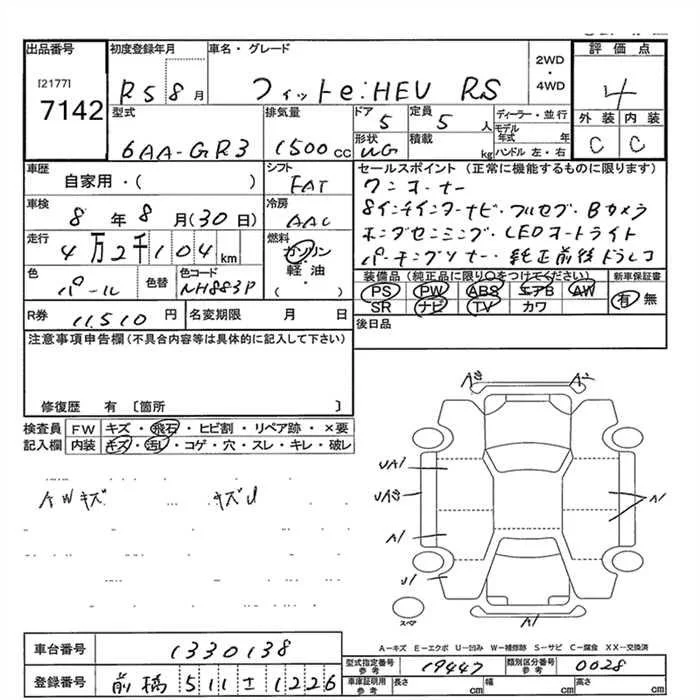 出品番号
[2177]
7142
初度登録年月
R5 8月
車名・グレード
フィット e:HEV RS
2WD
・
4WD
評価点
4
外装 内装
C C
型式
6AA-GR3
排気量
1500 cc
ドア
5
定員
5 人
形状
WG
積載
kg
ディーラー・並行
モデル年式 年
ハンドル 左・右
車歴
自家用・( )
シフト
FAT
車検
8年 8月(30日)
冷房
AAC
走行
4万2千104 km
燃料
ガソリン
・
軽油
・
( )
色
パール
色替
色コード
NH883P
R券 11,510 円
名変期限 月 日
セールスポイント (正常に機能するものに限ります)
ワンオーナー
8インチインターナビ・フルセグ・Bカメラ
ホンダセンシング・LEDオートライト
パーキングソナー・純正前後ドラレコ
装備品(純正品に限り○をつけてください)
PS PW ABS エアB AW
SR ナビ TV カワ
新車保証書
有 無
後日品
注意事項申告欄(不具合内容等は具体的に記入して下さい)
修復歴 有 〔箇所 〕
検査員記入欄
FW キズ・飛石・ヒビ割・リペア跡・×要
内装 キズ・汚レ・コゲ・穴・スレ・キレ・破レ
AWキズ
キズU
A2
UA1
A1
A1
U1
A1
スペア
A－キズ E－エクボ U－凹み W－補修跡 S－サビ C－腐食 XX－交換済
車台番号 1330138
登録番号 前橋 511 ± 1226
型式指定番号 参考 19447
類別区分番号 参考 0028
車庫証明用 参考 長さ cm 幅 cm 高さ cm